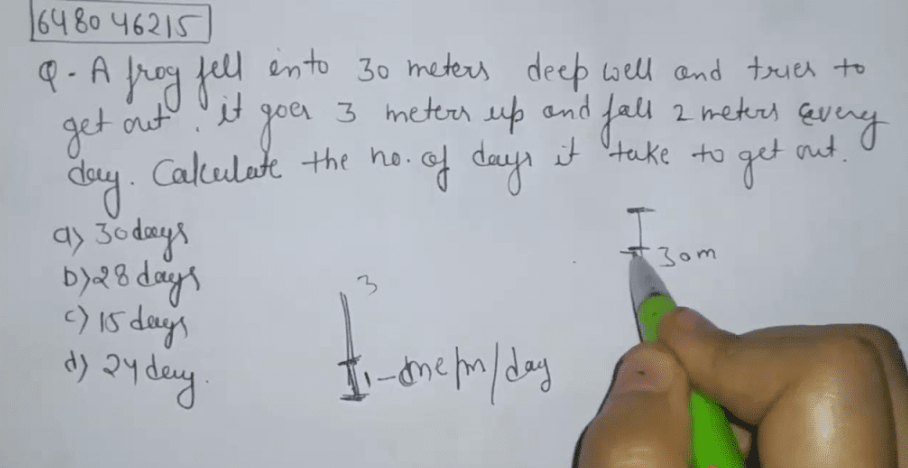 6480 46215
Q - A frog fell into 30 meters deep well and tries to
get out. it goes 3 meters up and fall 2 meters every
day. Calculate the no. of days it take to get out.
a) 30 days
b) 28 days
c) 15 days
d) 24 day.
3
1 - one m/day
30m